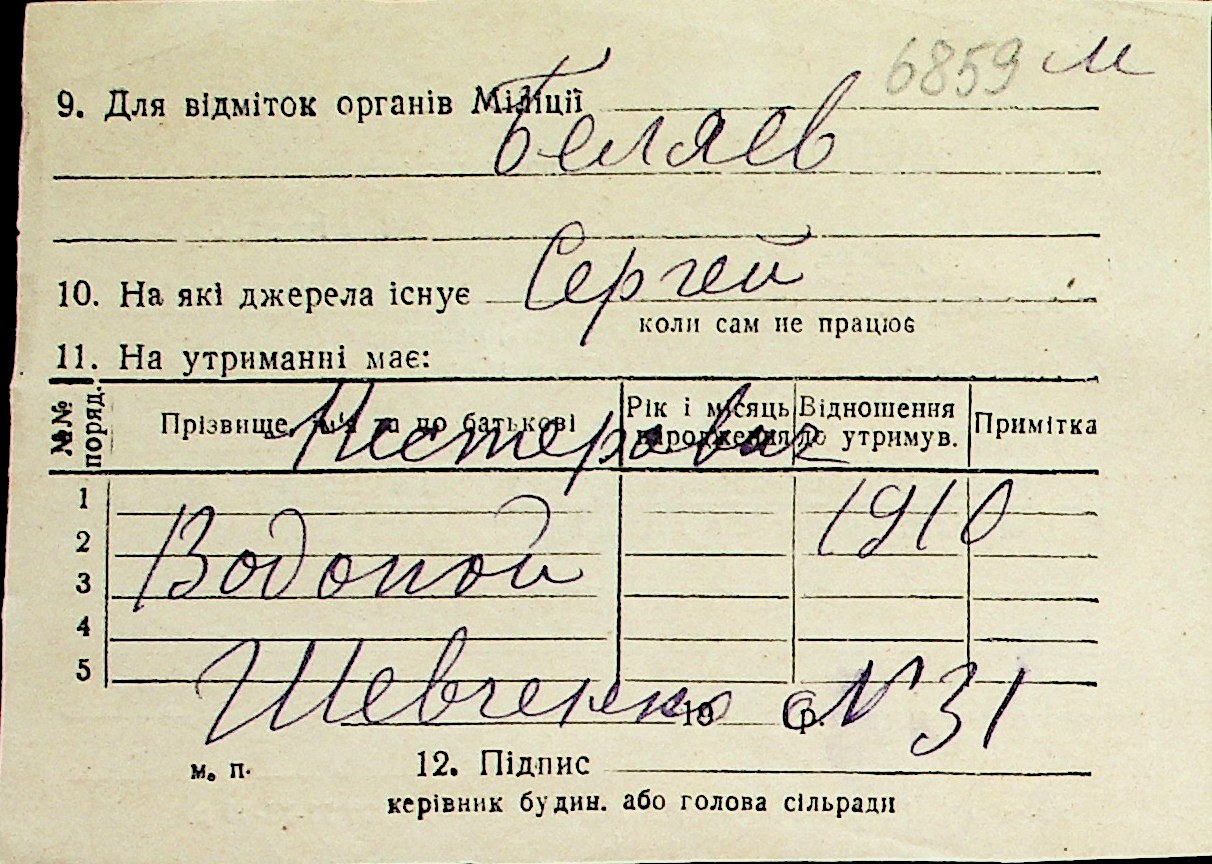 6859 м
9. Для відміток органів Міліції
Беляев
Сергей
10. На які джерела існує
коли сам не працює
11. На утриманні має:
№№ поряд. Прізвище, ім'я та по батькові Рік і місяць народження Відношення до утримув. Примітка
Нестерович
1
1910
2
Водопой
3
4
5
Шевченко № 31
19 р.
м. п. 12. Підпис
керівник будин. або голова сільради